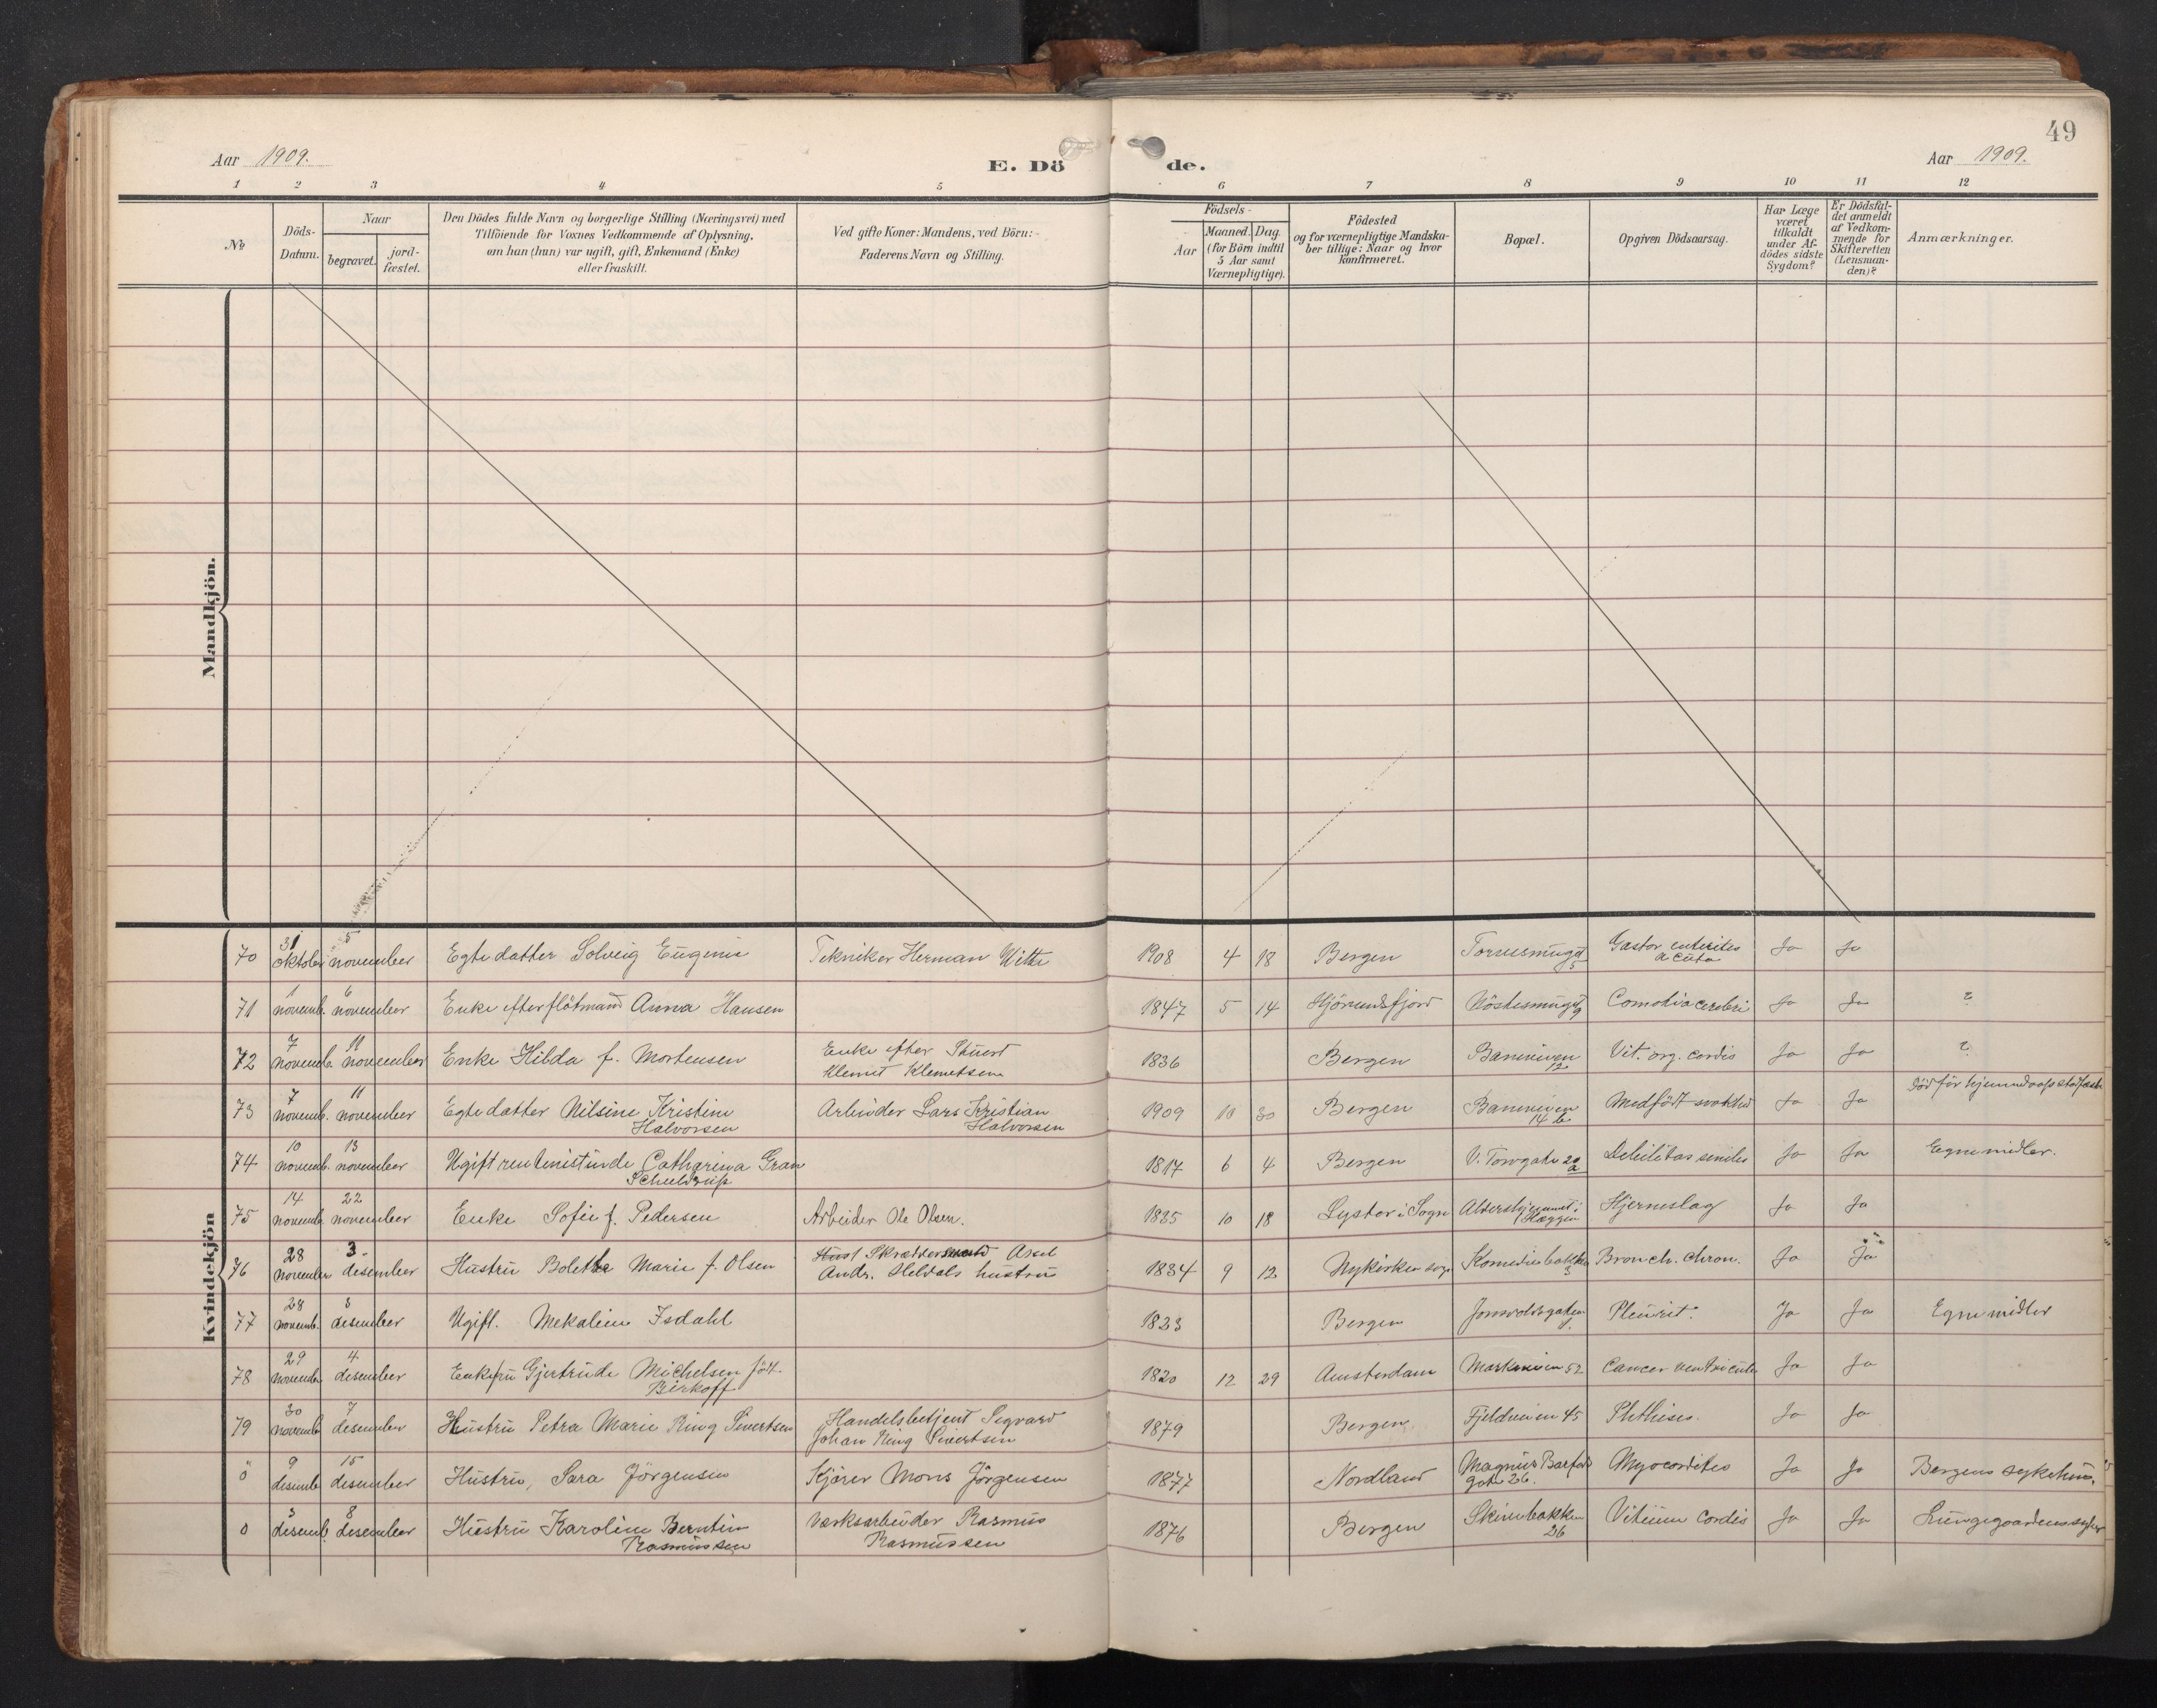 49
Aar 1909.
E. Dö
de.
Aar 1909.
1 2 3 4 5 6 7 8 9 10 11 12
No
Döds-
Datum.
Naar
begravet.
jord-
fæstet.
Den Dödes fulde Navn og borgerlige Stilling (Næringsvei) med
Tilföiende for Voxnes Vedkommende af Oplysning,
om han (hun) var ugift, gift, Enkemand (Enke)
eller fraskilt.
Ved gifte Koner: Mandens, ved Börn:
Faderens Navn og Stilling.
Födsels-
Aar
Maaned. Dag.
(for Börn indtil
5 Aar samt
Værnepligtige).
Födested
og for værnepligtige Mandska-
ber tillige: Naar og hvor
konfirmeret.
Bopæl.
Opgiven Dödsaarsag.
Har Læge
været
tilkaldt
under Af-
dödes sidste
Sygdom?
Er Dödsfal-
det anmeldt
af Vedkom-
mende for
Skifteretten
(Lensman-
den)?
Anmærkninger.
Mandkjön.
Kvindekjön
31 5
70 oktober november Egte datter Solveig Eugenie Tekniker Herman Witte 1908 4 18 Bergen 5 Gastor enterites Ja Ja
acuta
1 6
71 novemb. november Enke efter flötmand Anna Hansen 1847 5 14 Hjörundfjord Nöstesmuget 9 Comotio cerebri Ja Ja ?
7 11
72 novemb. november Enke Hilda f. Mortensen Enke efter Stuert
Klemet Klemetsen 1836 Bergen 12 Vit. org. cordis Ja Ja ?
7 11
73 novemb. november Egte datter Nilsine Kristine
Halvorsen Arbeider Lars Kristian
Halvorsen 1909 10 30 Bergen 14 b Medfödt svakhed Ja Ja död för hjemmedaap
10 13
74 novemb. november Ugift rentenistinde Catharina Gran
Schieldrup 1817 6 4 Bergen V. Torvgate 20 a Debilitas senilis Ja Ja Egne midler.
14 22
75 novemb. november Enke Sofie f. Pedersen Arbeider Ole Olsen. 1835 10 18 Lyster i Sogn Altershjemmet i
Hæggen Hjerneslag Ja Ja
28 3
76 november desember Hustru Bolette Marie f. Olsen Skrædder Axel
Andr. Heldals hustru 1834 9 12 Nykirken sogn Komediebakken
3 Bronch. chron. Ja Ja
28 3
77 novemb. desember Ugift. Mekaline Isdahl 1823 Bergen Jonsvoldsgaten
1. Pleurit. Ja Ja Egne midler
29 4
78 novemb. desember Enkefru Gjertrude Michelsen föd.
Birkoff 1820 12 29 Amsterdam Markeveien 52 Cancer ventricule Ja Ja
30 7
79 novemb desember Hustru Petra Marie Ring Sivertsen Handelsbetjent Sigvard
Johan Ring Sivertsen 1879 Bergen Fjeldveien 45 Phthises. Ja Ja
9 15
0 desemb desember Hustru, Sara Jörgensen Kjörer Mons Jörgensen 1877 Nordland Magnus Barfods
gate 26. Myocarditis Ja Ja Bergens sykehus.
3 8
0 desemb. desember Hustru Karoline Berntine
Rasmussen Værksarbeider Rasmus
Rasmussen 1876 Bergen Skivebakken
26 Vitium Cordis Ja Ja Lungegaardens sykeh